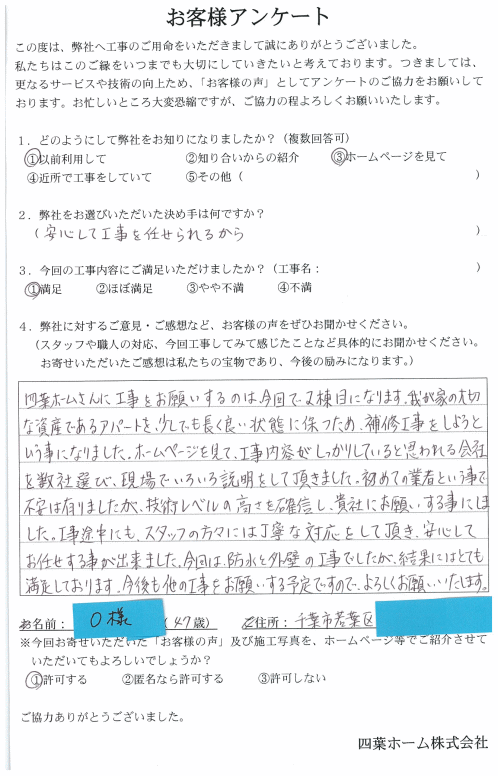 お客様アンケート
この度は、弊社へ工事のご用命をいただきまして誠にありがとうございました。
私たちはこのご縁をいつまでも大切にしていきたいと考えております。つきましては、
更なるサービスや技術の向上ため、「お客様の声」としてアンケートのご協力をお願いして
おります。お忙しいところ大変恐縮ですが、ご協力の程よろしくお願いいたします。
1．どのようにして弊社をお知りになりましたか？（複数回答可）
①以前利用して ②知り合いからの紹介 ③ホームページを見て
④近所で工事をしていて ⑤その他（ ）
2．弊社をお選びいただいた決め手は何ですか？
（安心して工事を任せられるから ）
3．今回の工事内容にご満足いただけましたか？（工事名： ）
①満足 ②ほぼ満足 ③やや不満 ④不満
4．弊社に対するご意見・ご感想など、お客様の声をぜひお聞かせください。
（スタッフや職人の対応、今回工事してみて感じたことなど具体的にお聞かせください。
お寄せいただいたご感想は私たちの宝物であり、今後の励みになります。）
四葉ホームさんに工事をお願いするのは、今回で2棟目になります。我が家の大切
な資産であるアパートを、少しでも長く良い状態に保つため、補修工事をしようと
いう事になりました。ホームページを見て、工事内容がしっかりしていると思われる会社
を数社選び、現場でいろいろ説明をして頂きました。初めての業者という事で
不安は有りましたが、技術レベルの高さを確信し、貴社にお願いする事にしま
した。工事途中にも、スタッフの方々には丁寧な対応をして頂き、安心して
お任せする事が出来ました。今回は、防水と外壁の工事でしたが、結果にはとても
満足しております。今後も他の工事をお願いする予定ですので、よろしくお願いいたします。
お名前： O様 （47歳） ご住所：千葉市若葉区
※今回お寄せいただいた「お客様の声」及び施工写真を、ホームページ等でご紹介させて
いただいてもよろしいでしょうか？
①許可する ②匿名なら許可する ③許可しない
ご協力ありがとうございました。
四葉ホーム株式会社